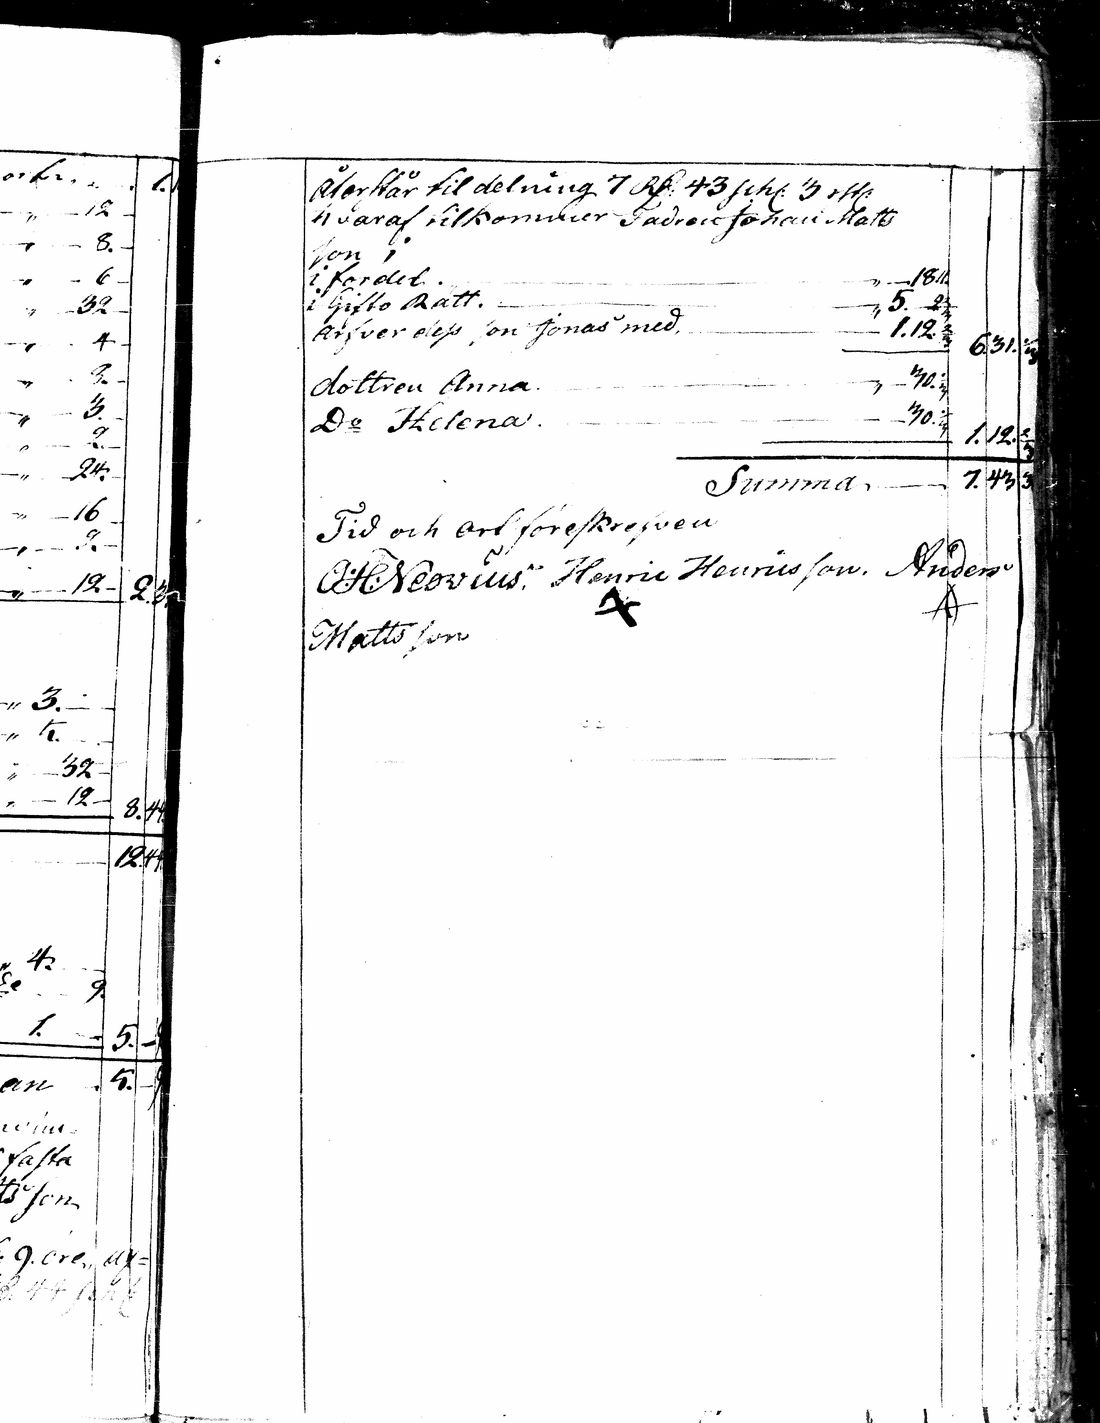 ostr. " . 1.1
" 12
" 8.
" 6
" 32
" 4
" 3.
" 3.
" 2.
" 24.
" 16
" 9.
" 12 2.3
" 3.
"
" 32
" 12 8.44
12.44
4.
9.
1. 5.
an 5.
fasta
ts son
9. öre, ut=
44 sch
återstår til delning 7 Rd: 43 sch: 3 rst:
hvaraf tilkommer Fadren Johan Matts
son i
i fördel. " 18.
i Gifto Rätt. " 5. 2
arfver dess son Jonas med, 1.12. 2/3 6.31.
dottren Anna. " 30.
Do Helena. 30. 1.12. 2/3
Summa. 7.43 3
Tid och ort föreskrefven
A:H:Neovius. Henric Henricsson. Anders
X A
Mattsson